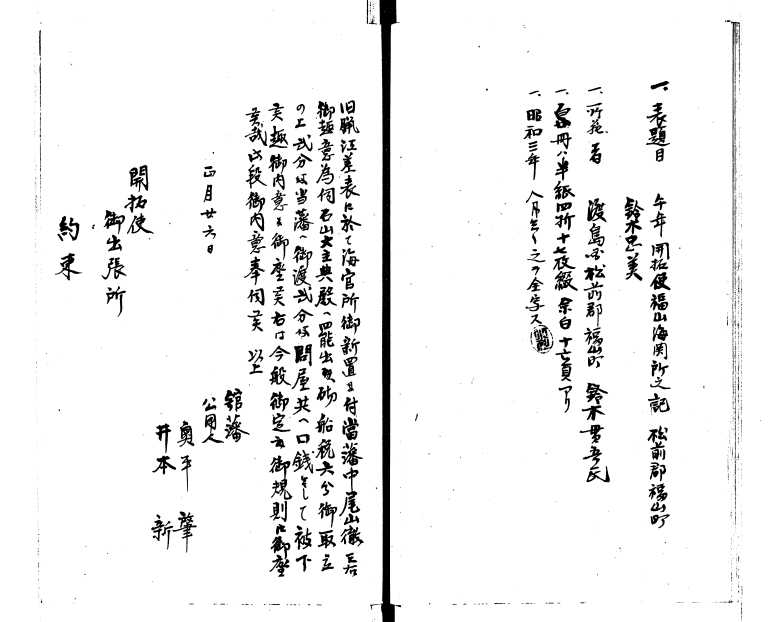 一、表題目 午年 開拓使福山海関所之記 松前郡福山町
鈴木忠美
一、所蔵者 渡島国松前郡福山町 鈴木貫吾氏
一、冊ハ半紙四折十七枚綴 余白十六頁アリ
一、昭和三年八月 之ヲ全写ス
旧臘江差表ニ於て海官所御新置ニ付當藩中尾山徹三右
御趣意為伺石山大主典殿へ罷出候砌、船税六分御取立
の上弐分は当藩へ御渡弐分は問屋共へ口銭として被下
候趣御内意ニ御座候右は今般御定之御規則に御座
候哉此段御内意奉伺候 以上
正月廿六日
舘藩
公用人
奥平 肇
井本 新
開拓使
御出張所
約束